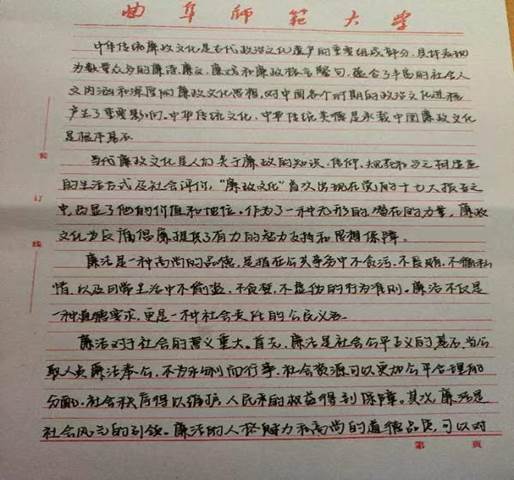 曲阜师范大学
中华传统廉政文化是古代政治文化遗产的重要组成部分,具体表现
为数量众多的廉洁、廉义、廉
和廉政格言警句,蕴含了丰富的社会人
文内涵和深厚的廉政文化思想,对中国各个时期的政治文化进程
产生了重要影响。中华传统文化、中华传统美德是承载中国廉政文化
当代廉政文化是人们关于廉政的知识、信仰、规范和与之相适应
的生活方式及社会评价。“廉政文化”首次出现在党的十七大报告之
中,凸显了他的价值和地位。作为了一种无形的、潜在的力量,廉政
文化为反腐倡廉提供了有力的智力支持和思想保障。
廉洁是一种高尚的品德,是指在公共事务中不贪污、不受贿、不徇私
情,以及日常生活中不偷盗、不贪婪、不虚伪的行为准则。廉洁不仅是
一种道德要求,更是一种社会责任的公民义务
廉洁对于社会的意义重大。首先,廉洁是社会公平正义的基石,当公
职人员廉洁奉公,不为私利而行事,社会资源可以更加公平合理的
分配,社会秩序得以维护,人民本的权益得到保障。其次,廉洁是
社会风气的引领。廉洁的人格魅力和高尚的道德品质,可以对
装
订
线
第 页